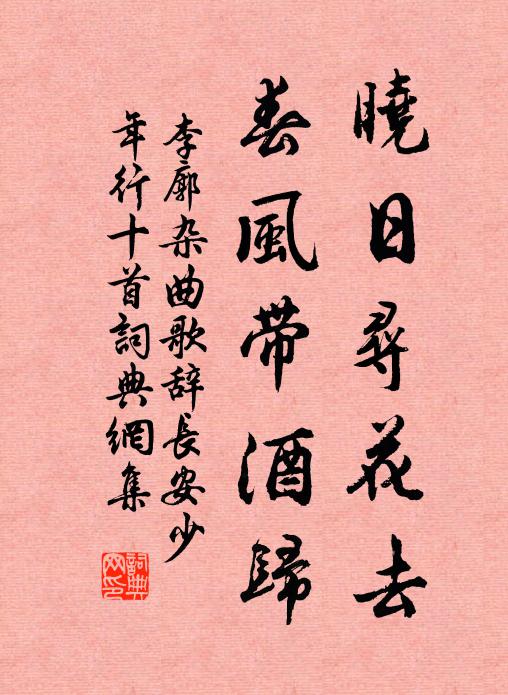 曉日尋花去
春風帶酒歸
李廓杂曲歌辞長安少
年行十首詞典網集
詞典网印